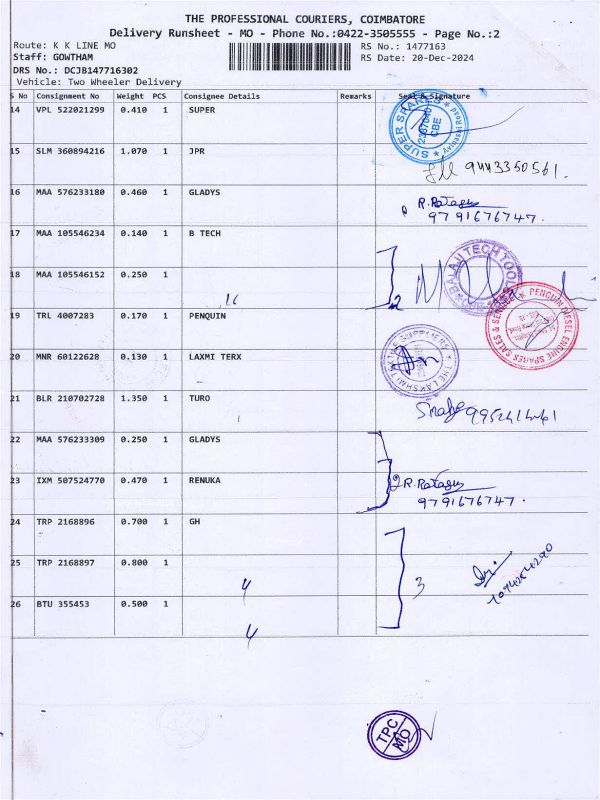 THE PROFESSIONAL COURIERS, COIMBATORE
Delivery Runsheet - MO - Phone No.:0422-3505555 - Page No.:2
Route: K K LINE MO
RS No.: 1477163
Staff: GOWTHAM
RS Date: 20-Dec-2024
DRS No.: DCJB147716302
Vehicle: Two Wheeler Delivery
S No Consignment No Weight PCS Consignee Details Remarks Seal & Signature
14 VPL 522021299 0.410 1 SUPER
SUPER SPARES CBE
15 SLM 360894216 1.070 1 JPR
9443350561.
16 MAA 576233180 0.460 1 GLADYS
R.Rajagu
9791676747.
17 MAA 105546234 0.140 1 B TECH
BALAJI TECH TOOL
18 MAA 105546152 0.250 1
2
19 TRL 4007283 0.170 1 PENQUIN
PENGUIN DIESEL ENGINE SPARES SALES & SERVICE
20 MNR 60122628 0.130 1 LAXMI TERX
THE LAKSHMI
21 BLR 210702728 1.350 1 TURO
22 MAA 576233309 0.250 1 GLADYS
23 IXM 507524770 0.470 1 RENUKA
2 R.Rajagu
9791676747.
24 TRP 2168896 0.700 1 GH
25 TRP 2168897 0.800 1
3
26 BTU 355453 0.500 1
TPC
MO